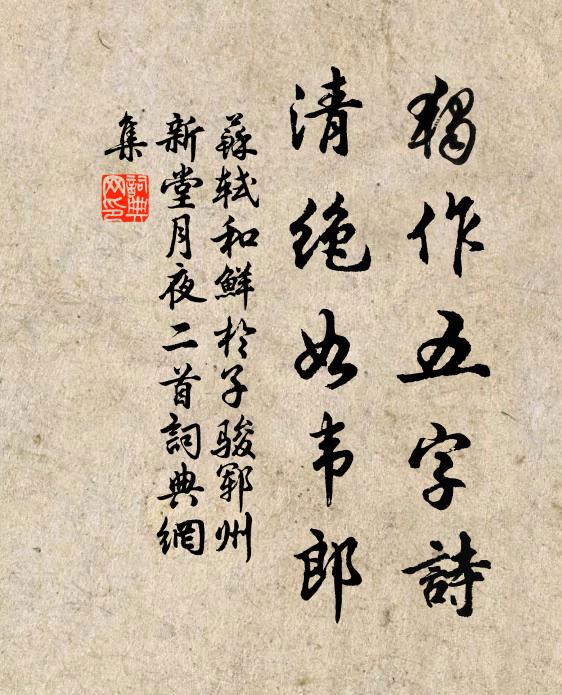 獨作五字詩
清絶如韦郎
蘇軾和鮮於子駿鄆州
新堂月夜二首詞典網
集
詞典
网印